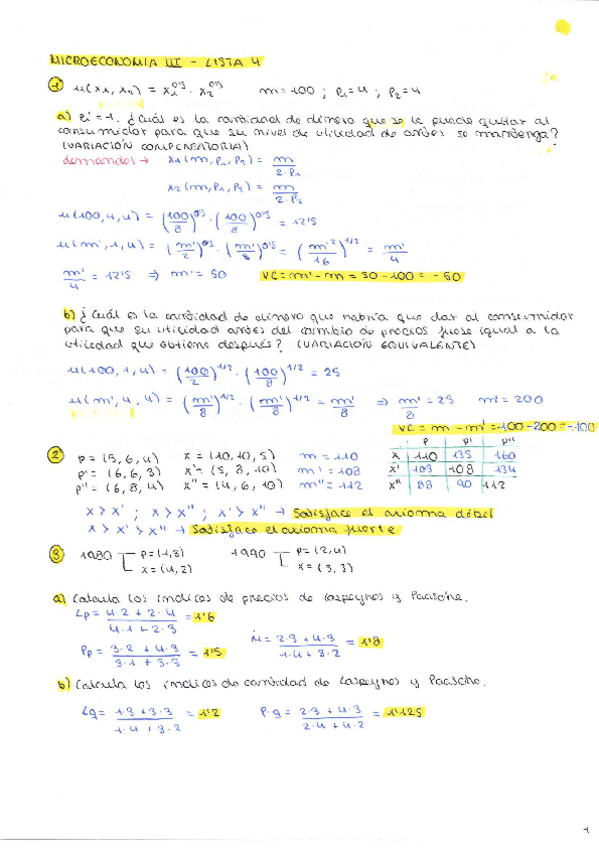 MICROECONOMIA III - LISTA 4
1 u(x1, x2) = x1^0'5 · x2^0'5 m=100 ; p1=4 ; p2=4
a) p1'=1. ¿Cuál es la cantidad de dinero que se le puede quitar al
consumidor para que su nivel de utilidad de antes se mantenga?
(VARIACIÓN COMPENSATORIA)
demandas → x1(m,p1,p2) = m/2·p1
x2(m,p1,p2) = m/2·p2
u(100,4,4) = (100/8)^0'5 · (100/8)^0'5 = 12'5
u(m',1,4) = (m'/2)^0'5 · (m'/8)^0'5 = (m'^2/16)^1/2 = m'/4
m'/4 = 12'5 ⇒ m' = 50 VC = m' - m = 50 - 100 = -50
b) ¿Cuál es la cantidad de dinero que habría que dar al consumidor
para que su utilidad antes del cambio de precios fuese igual a la
utilidad que obtiene después? (VARIACIÓN EQUIVALENTE)
u(100,1,4) = (100/2)^1/2 · (100/8)^1/2 = 25
u(m',4,4) = (m'/8)^1/2 · (m'/8)^1/2 = m'/8 ⇒ m'/8 = 25 m' = 200
VC = m - m' = 100 - 200 = -100
2 p = (5,6,4) x = (10,10,5) m = 110 p p' p''
p' = (6,6,3) x' = (5,8,10) m' = 108 x 110 135 160
p'' = (6,8,4) x'' = (4,6,10) m'' = 112 x' 103 108 134
x'' 88 90 112
x > x' ; x > x'' ; x' > x'' → Satisface el axioma débil
x > x' > x'' → Satisface el axioma fuerte
3 1980 p = (1,3) 1990 p = (2,4)
x = (4,2) x = (3,3)
a) Calcula los índices de precios de Laspeyres y Paasche.
Lp = 4·2 + 2·4 / 4·1 + 2·3 = 1'6
Pp = 3·2 + 4·3 / 3·1 + 3·3 = 1'5 = 2·3 + 4·3 / 1·4 + 3·2 = 1'8
b) Calcula los índices de cantidad de Laspeyres y Paasche.
Lq = 1·3 + 3·3 / 1·4 + 3·2 = 1'2 Pq = 2·3 + 4·3 / 2·4 + 4·2 = 1'125
1